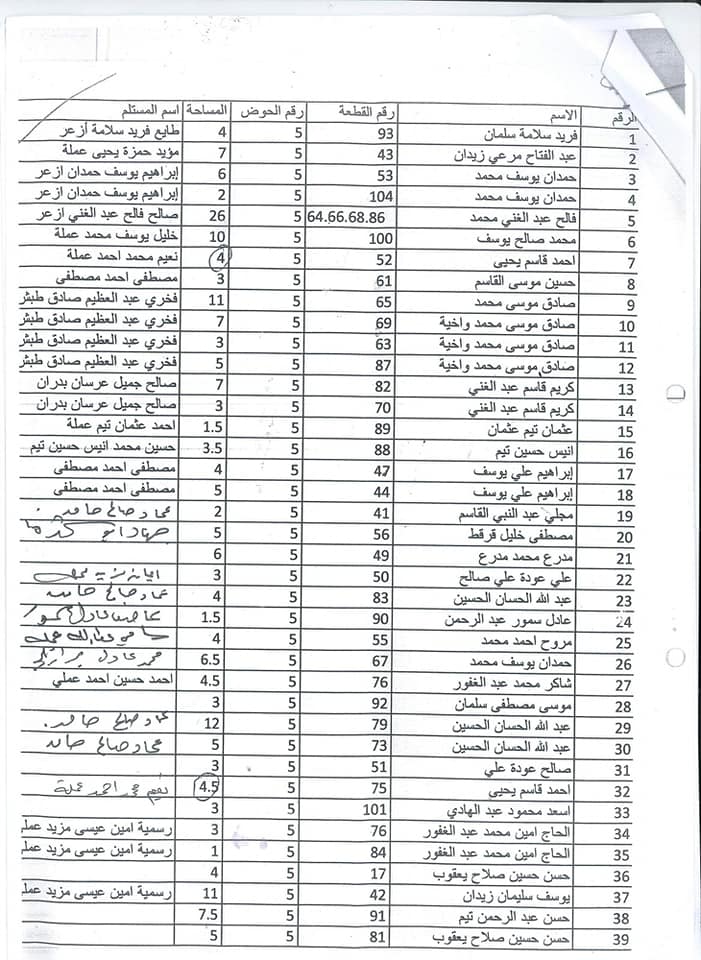 الرقم الاسم رقم القطعة رقم الحوض المساحة اسم المستلم
1 فريد سلامة سلمان 93 5 4 طايع فريد سلامة أزعر
2 عبد الفتاح مرعي زيدان 43 5 7 مؤيد حمزة يحيى عملة
3 حمدان يوسف محمد 53 5 6 إبراهيم يوسف حمدان ازعر
4 حمدان يوسف محمد 104 5 2 إبراهيم يوسف حمدان ازعر
5 فالح عبد الغني محمد 64.66.68.86 5 26 صالح فالح عبد الغني ازعر
6 محمد صالح يوسف 100 5 10 خليل يوسف محمد عملة
7 احمد قاسم يحيى 52 5 4 نعيم محمد احمد عملة
8 حسين موسى القاسم 61 5 3 مصطفى احمد مصطفى
9 صادق موسى محمد 65 5 11 فخري عبد العظيم صادق طبش
10 صادق موسى محمد واخية 69 5 7 فخري عبد العظيم صادق طبش
11 صادق موسى محمد واخية 63 5 3 فخري عبد العظيم صادق طبش
12 صادق موسى محمد واخية 87 5 5 فخري عبد العظيم صادق طبش
13 كريم قاسم عبد الغني 82 5 7 صالح جميل عرسان بدران
14 كريم قاسم عبد الغني 70 5 3 صالح جميل عرسان بدران
15 عثمان تيم عثمان 89 5 1.5 احمد عثمان تيم عملة
16 انيس حسين تيم 88 5 3.5 حسين محمد انيس حسين تيم
17 إبراهيم علي يوسف 47 5 4 مصطفى احمد مصطفى
18 إبراهيم علي يوسف 44 5 5 مصطفى احمد مصطفى
19 مجلي عبد النبي القاسم 41 5 2 عماد صالح حامد
20 مصطفى خليل قرقط 56 5 5
21 مدرع محمد مدرع 49 5 6
22 علي عودة علي صالح 50 5 3
23 عبد الله الحسان الحسين 83 5 4 عماد صالح حامد
24 عادل سمور عبد الرحمن 90 5 1.5 عادل سمور
25 مروح احمد محمد 55 5 4 عملة
26 حمدان يوسف محمد 67 5 6.5 محمد عادل
27 شاكر محمد عبد الغفور 76 5 4.5 احمد حسين احمد عملي
28 موسى مصطفى سلمان 92 5 3
29 عبد الله الحسان الحسين 79 5 12 عماد صالح حامد
30 عبد الله الحسان الحسين 73 5 5 عماد صالح حامد
31 صالح عودة علي 51 5 3
32 احمد قاسم يحيى 75 5 4.5 نعيم محمد احمد عملة
33 اسعد محمود عبد الهادي 101 5 3
34 الحاج امين محمد عبد الغفور 76 5 3 رسمية امين عيسى مزيد عملي
35 الحاج امين محمد عبد الغفور 84 5 1 رسمية امين عيسى مزيد عملي
36 حسن حسين صلاح يعقوب 17 5 4
37 يوسف سليمان زيدان 42 5 11 رسمية امين عيسى مزيد عملي
38 حسن عبد الرحمن تيم 91 5 7.5
39 حسن حسين صلاح يعقوب 81 5 5